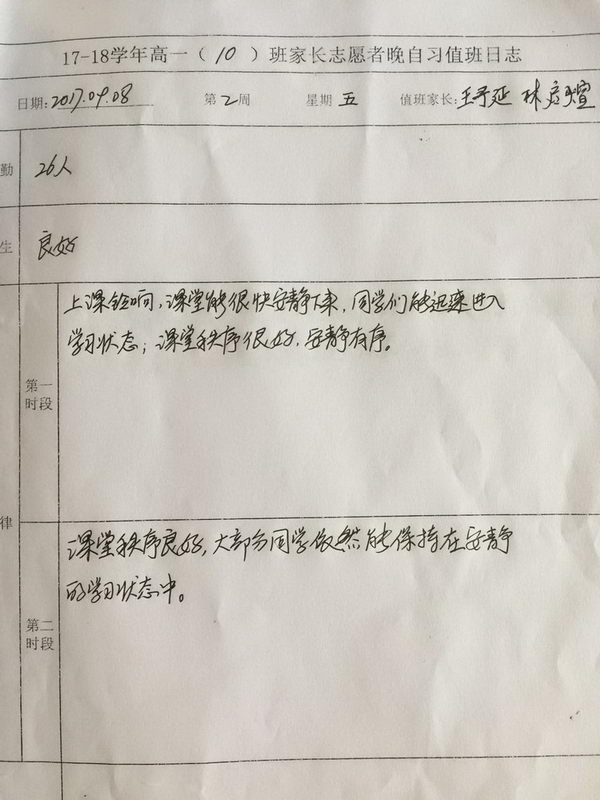 17-18学年高一（10）班家长志愿者晚自习值班日志
日期:2017.09.08 第2周 星期五 值班家长:
勤 26人
生 良好
上课铃响，课堂能很快安静下来，同学们能迅速进入
学习状态；课堂秩序很好，安静有序。
第一
时段
律
课堂秩序良好，大部分同学依然能保持在安静
的学习状态中。
第二
时段